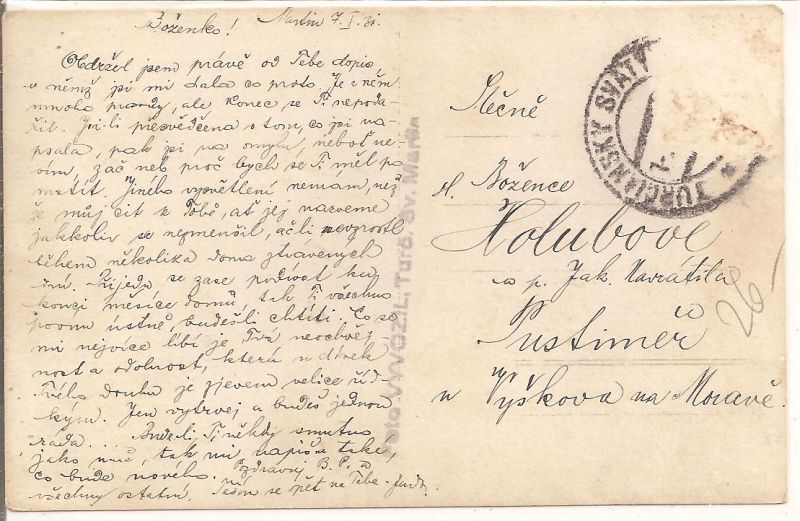 Boženko! Martin 7. I. 31.
Obdržel jsem právě od Tebe dopis,
v němž jsi mi dala co proto. Je v něm
mnoho pravdy, ale konec se Ti nepoda-
řil. Jsi-li přesvědčena o tom, co jsi na-
psala, pak jsi na omylu, neboť ne-
vím, zač neb proč bych se Ti měl po
mstít. Jiného vysvětlení nemam, než
že můj cit k Tobě, ať jej nazveme
jakkoliv se nezmenšil, ač-li nevzrostl
během několika doma ztrávených
dní. Přijedu se zase podívat ku
konci měsíce domů, tak Ti všechno
povím ústně, budeš-li chtíti. Co se
mi nejvíce líbí je Tvá neochvěj-
nost a odolnost, která u dívek
Tvého druhu je zjevem velice říd-
kým. Jen vytrvej a budeš jednou
ráda... Bude-li Ti někdy smutno
jako mně, tak mi napiš a také,
co bude nového. Pozdravuj B. P. a
všechny ostatní. Těším se opět na Tebe
Foto VYVOZIL, Turč. Sv. Martin
TURČIANSKY SVÄTÝ
Slečně
sl. Božence
Holubove
u p. Jak. Navrátila
Pustiměř
u Vyškova na Moravě.
26